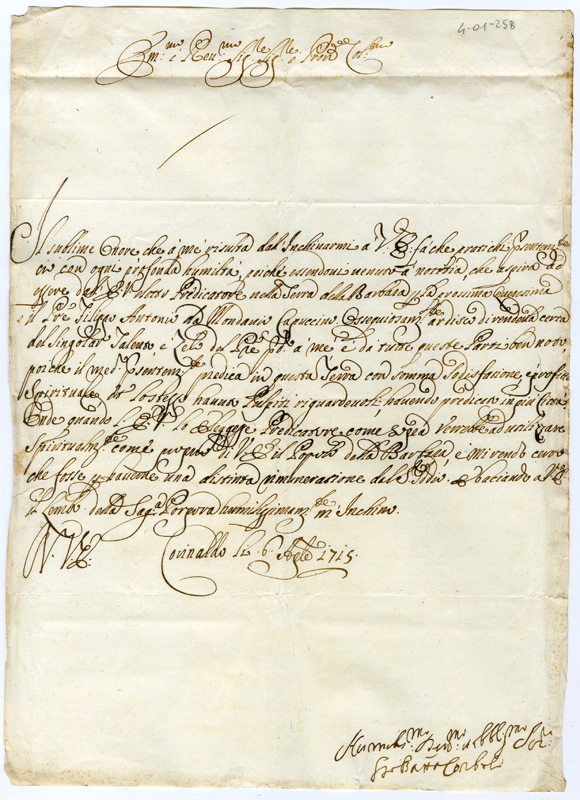 4-01-258
Em.mo e Rev.mo Sig.re Sig.re e Pron. Col.mo
Il sublime Onore che à me risulta dal Inchinarmi a V. E. fà che pratichi
ciò con ogni profonda humiltà, poiche essendomi venuta notitia che aspira ad
essere dall' E. V. Predicatore nella Terra della Barbara p la prossima
il Pre Filippo Antonio da Mondavio Capuccino Ossequiosam.te ardisco di renderla certa
del Singolar Talento e Zelo del Pre Pd.o a me e da tutte queste Parti ben noto
poiche il med.o predica in questa Terra con somma sodisfazione e profitto
Spirituale Pulpiti riguardevoli havendo predicato in più Città
Onde quando l' E. V. lo elegesse Predicatore come verrebbe ad
Spiritualm.te come di V. E. il Popolo della Barbara e mi rendo certo
che fosse p haverne una distinta rimuneratione del Sig. Iddio. e baciando a V. E.
il Lembo della Sag.a Porpora humilissimam.te m' Inchino.
D. V. E. Corinaldo li 6. Agto 1715.
Humiliss.mo Dev.mo et Obblig.mo Ser.e